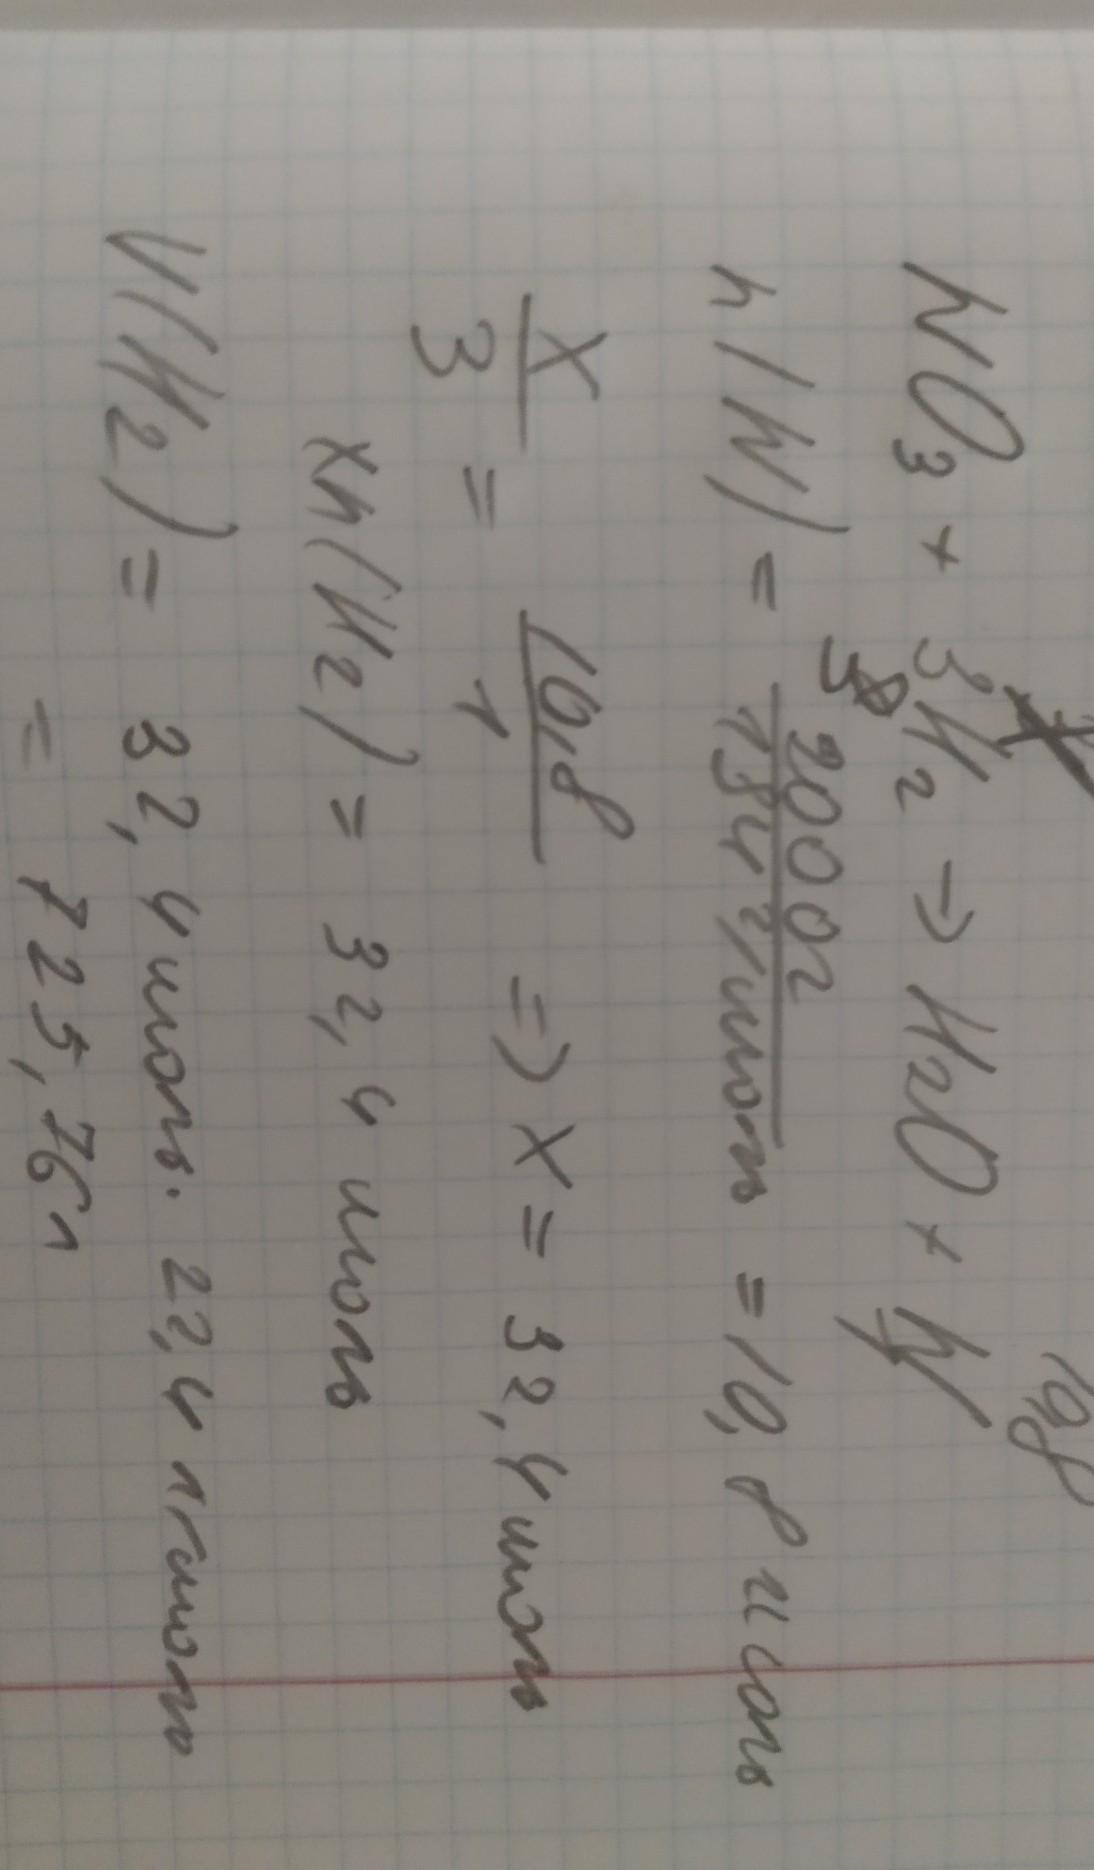 10,8
WO₃ + 3H₂ → H₂O + W
n(W) = 2000г / 184 г/моль = 10,8 моль
x/3 = 10,8/1 => x = 32,4 моль
n(H₂) = 32,4 моль
V(H₂) = 32,4 моль · 22,4 л/моль
= 725,76 л